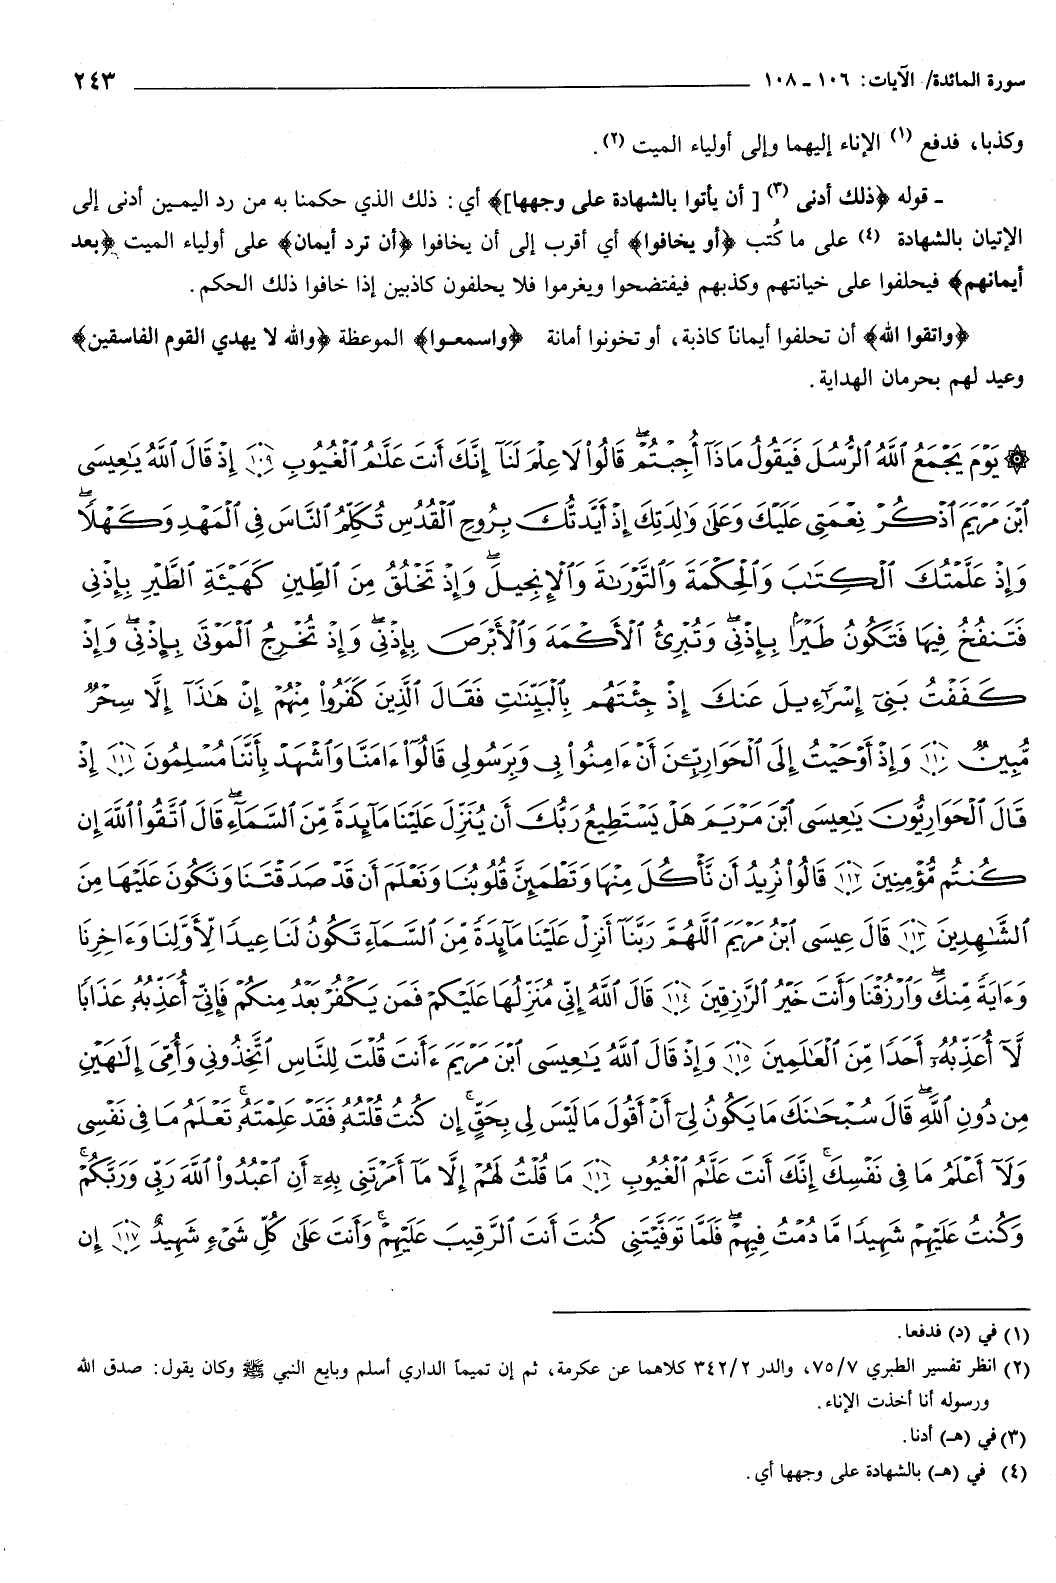 سورة المائدة/ الآيات: ١٠٦ ـ ١٠٨ ٢٤٣
وكذبا، فدفع (١) الإناء إليهما وإلى أولياء الميت (٢).
ـ قوله ﴿ذلك أدنى (٣) [ أن يأتوا بالشهادة على وجهها]﴾ أي: ذلك الذي حكمنا به من رد اليمين أدنى إلى
الإتيان بالشهادة (٤) على ما كُتب ﴿أو يخافوا﴾ أي أقرب إلى أن يخافوا ﴿أن ترد أيمان﴾ على أولياء الميت ﴿بعد
أيمانهم﴾ فيحلفوا على خيانتهم وكذبهم فيفتضحوا ويغرموا فلا يحلفون كاذبين إذا خافوا ذلك الحكم.
﴿واتقوا الله﴾ أن تحلفوا أيماناً كاذبة، أو تخونوا أمانة ﴿واسمعوا﴾ الموعظة ﴿والله لا يهدي القوم الفاسقين﴾
وعيد لهم بحرمان الهداية.
۞ يَوْمَ يَجْمَعُ ٱللَّهُ ٱلرُّسُلَ فَيَقُولُ مَاذَآ أُجِبْتُمْ ۖ قَالُوا۟ لَا عِلْمَ لَنَآ إِنَّكَ أَنتَ عَلَّٰمُ ٱلْغُيُوبِ ﴿١٠٩﴾ إِذْ قَالَ ٱللَّهُ يَٰعِيسَى
ٱبْنَ مَرْيَمَ ٱذْكُرْ نِعْمَتِى عَلَيْكَ وَعَلَىٰ وَٰلِدَتِكَ إِذْ أَيَّدتُّكَ بِرُوحِ ٱلْقُدُسِ تُكَلِّمُ ٱلنَّاسَ فِى ٱلْمَهْدِ وَكَهْلًا ۖ
وَإِذْ عَلَّمْتُكَ ٱلْكِتَٰبَ وَٱلْحِكْمَةَ وَٱلتَّوْرَىٰةَ وَٱلْإِنجِيلَ ۖ وَإِذْ تَخْلُقُ مِنَ ٱلطِّينِ كَهَيْـَٔةِ ٱلطَّيْرِ بِإِذْنِى
فَتَنفُخُ فِيهَا فَتَكُونُ طَيْرًۢا بِإِذْنِى ۖ وَتُبْرِئُ ٱلْأَكْمَهَ وَٱلْأَبْرَصَ بِإِذْنِى ۖ وَإِذْ تُخْرِجُ ٱلْمَوْتَىٰ بِإِذْنِى ۖ وَإِذْ
كَفَفْتُ بَنِىٓ إِسْرَٰٓءِيلَ عَنكَ إِذْ جِئْتَهُم بِٱلْبَيِّنَٰتِ فَقَالَ ٱلَّذِينَ كَفَرُوا۟ مِنْهُمْ إِنْ هَٰذَآ إِلَّا سِحْرٌ
مُّبِينٌ ﴿١١٠﴾ وَإِذْ أَوْحَيْتُ إِلَى ٱلْحَوَارِيِّۦنَ أَنْ ءَامِنُوا۟ بِى وَبِرَسُولِى قَالُوٓا۟ ءَامَنَّا وَٱشْهَدْ بِأَنَّنَا مُسْلِمُونَ ﴿١١١﴾ إِذْ
قَالَ ٱلْحَوَارِيُّونَ يَٰعِيسَى ٱبْنَ مَرْيَمَ هَلْ يَسْتَطِيعُ رَبُّكَ أَن يُنَزِّلَ عَلَيْنَا مَآئِدَةً مِّنَ ٱلسَّمَآءِ ۖ قَالَ ٱتَّقُوا۟ ٱللَّهَ إِن
كُنتُم مُّؤْمِنِينَ ﴿١١٢﴾ قَالُوا۟ نُرِيدُ أَن نَّأْكُلَ مِنْهَا وَتَطْمَئِنَّ قُلُوبُنَا وَنَعْلَمَ أَن قَدْ صَدَقْتَنَا وَنَكُونَ عَلَيْهَا مِنَ
ٱلشَّٰهِدِينَ ﴿١١٣﴾ قَالَ عِيسَى ٱبْنُ مَرْيَمَ ٱللَّهُمَّ رَبَّنَآ أَنزِلْ عَلَيْنَا مَآئِدَةً مِّنَ ٱلسَّمَآءِ تَكُونُ لَنَا عِيدًا لِّأَوَّلِنَا وَءَاخِرِنَا
وَءَايَةً مِّنكَ ۖ وَٱرْزُقْنَا وَأَنتَ خَيْرُ ٱلرَّٰزِقِينَ ﴿١١٤﴾ قَالَ ٱللَّهُ إِنِّى مُنَزِّلُهَا عَلَيْكُمْ ۖ فَمَن يَكْفُرْ بَعْدُ مِنكُمْ فَإِنِّىٓ أُعَذِّبُهُۥ عَذَابًا
لَّآ أُعَذِّبُهُۥٓ أَحَدًا مِّنَ ٱلْعَٰلَمِينَ ﴿١١٥﴾ وَإِذْ قَالَ ٱللَّهُ يَٰعِيسَى ٱبْنَ مَرْيَمَ ءَأَنتَ قُلْتَ لِلنَّاسِ ٱتَّخِذُونِى وَأُمِّىَ إِلَٰهَيْنِ
مِن دُونِ ٱللَّهِ ۖ قَالَ سُبْحَٰنَكَ مَا يَكُونُ لِىٓ أَنْ أَقُولَ مَا لَيْسَ لِى بِحَقٍّ ۚ إِن كُنتُ قُلْتُهُۥ فَقَدْ عَلِمْتَهُۥ ۚ تَعْلَمُ مَا فِى نَفْسِى
وَلَآ أَعْلَمُ مَا فِى نَفْسِكَ ۚ إِنَّكَ أَنتَ عَلَّٰمُ ٱلْغُيُوبِ ﴿١١٦﴾ مَا قُلْتُ لَهُمْ إِلَّا مَآ أَمَرْتَنِى بِهِۦٓ أَنِ ٱعْبُدُوا۟ ٱللَّهَ رَبِّى وَرَبَّكُمْ ۚ
وَكُنتُ عَلَيْهِمْ شَهِيدًا مَّا دُمْتُ فِيهِمْ ۖ فَلَمَّا تَوَفَّيْتَنِى كُنتَ أَنتَ ٱلرَّقِيبَ عَلَيْهِمْ ۚ وَأَنتَ عَلَىٰ كُلِّ شَىْءٍ شَهِيدٌ ﴿١١٧﴾ إِن
(١) في (د) فدفعا.
(٢) انظر تفسير الطبري ٧٥/٧، والدر ٣٤٢/٢ كلاهما عن عكرمة، ثم إن تميماً الداري أسلم وبايع النبي ﷺ وكان يقول: صدق الله
ورسوله أنا أخذت الإناء.
(٣) في (هـ) أدنا.
(٤) في (هـ) بالشهادة على وجهها أي.